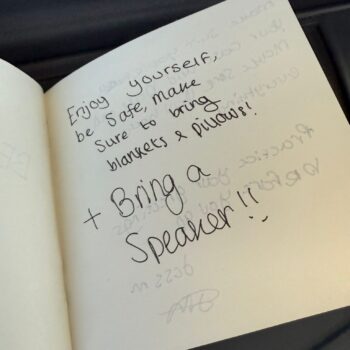 Enjoy yourself,
be Safe, make
Sure to bring
blankets & pillows!
+ Bring a
Speaker!!